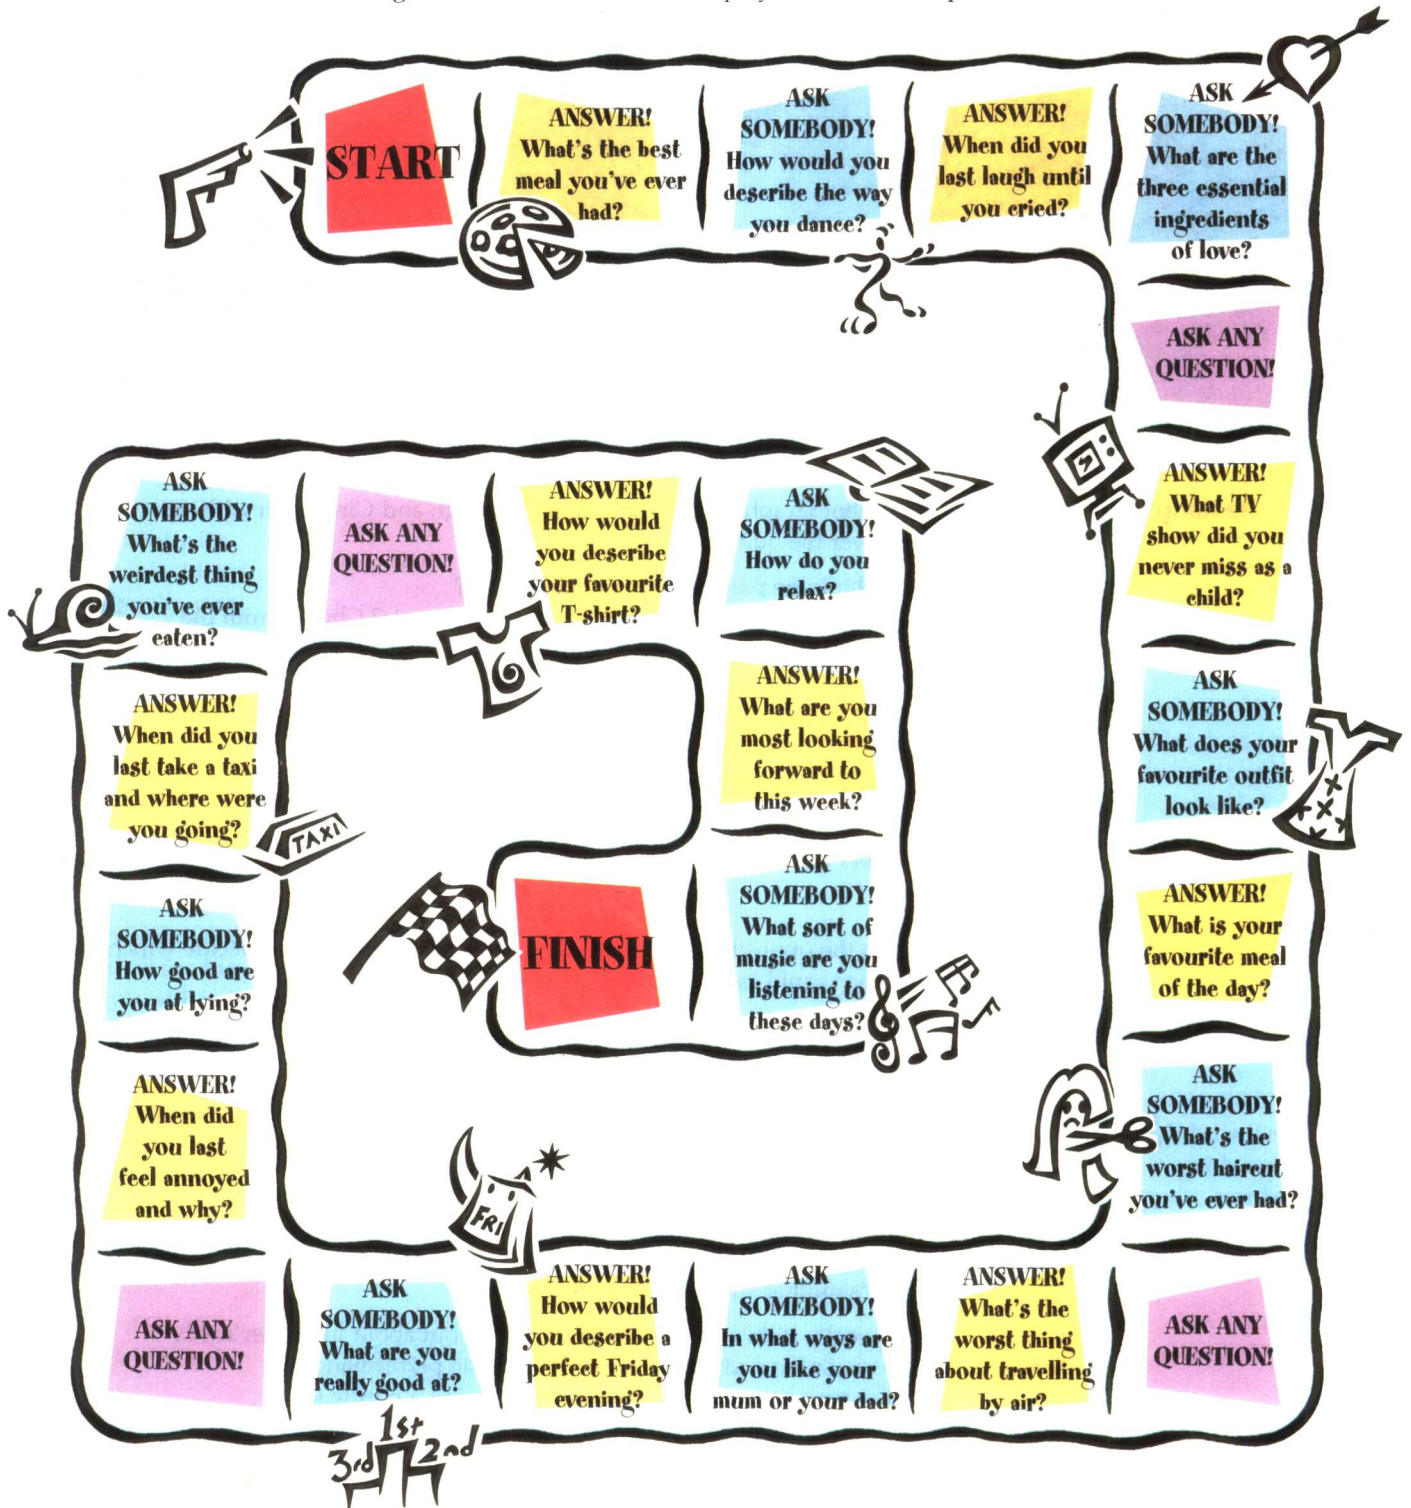 START
ANSWER!
What's the best
meal you've ever
had?
ASK
SOMEBODY!
How would you
describe the way
you dance?
ANSWER!
When did you
last laugh until
you cried?
ASK
SOMEBODY!
What are the
three essential
ingredients
of love?
ASK ANY
QUESTION!
ANSWER!
What TV
show did you
never miss as a
child?
ASK
SOMEBODY!
What does your
favourite outfit
look like?
ANSWER!
What is your
favourite meal
of the day?
ASK
SOMEBODY!
What's the
worst haircut
you've ever had?
ASK ANY
QUESTION!
ANSWER!
What's the
worst thing
about travelling
by air?
ASK
SOMEBODY!
In what ways are
you like your
mum or your dad?
ANSWER!
How would
you describe a
perfect Friday
evening?
FRI
ASK
SOMEBODY!
What are you
really good at?
1st
3rd 2nd
ASK ANY
QUESTION!
ANSWER!
When did
you last
feel annoyed
and why?
ASK
SOMEBODY!
How good are
you at lying?
ANSWER!
When did you
last take a taxi
and where were
you going?
TAXI
ASK
SOMEBODY!
What's the
weirdest thing
you've ever
eaten?
ASK ANY
QUESTION!
ANSWER!
How would
you describe
your favourite
T-shirt?
ASK
SOMEBODY!
How do you
relax?
ANSWER!
What are you
most looking
forward to
this week?
ASK
SOMEBODY!
What sort of
music are you
listening to
these days?
FINISH